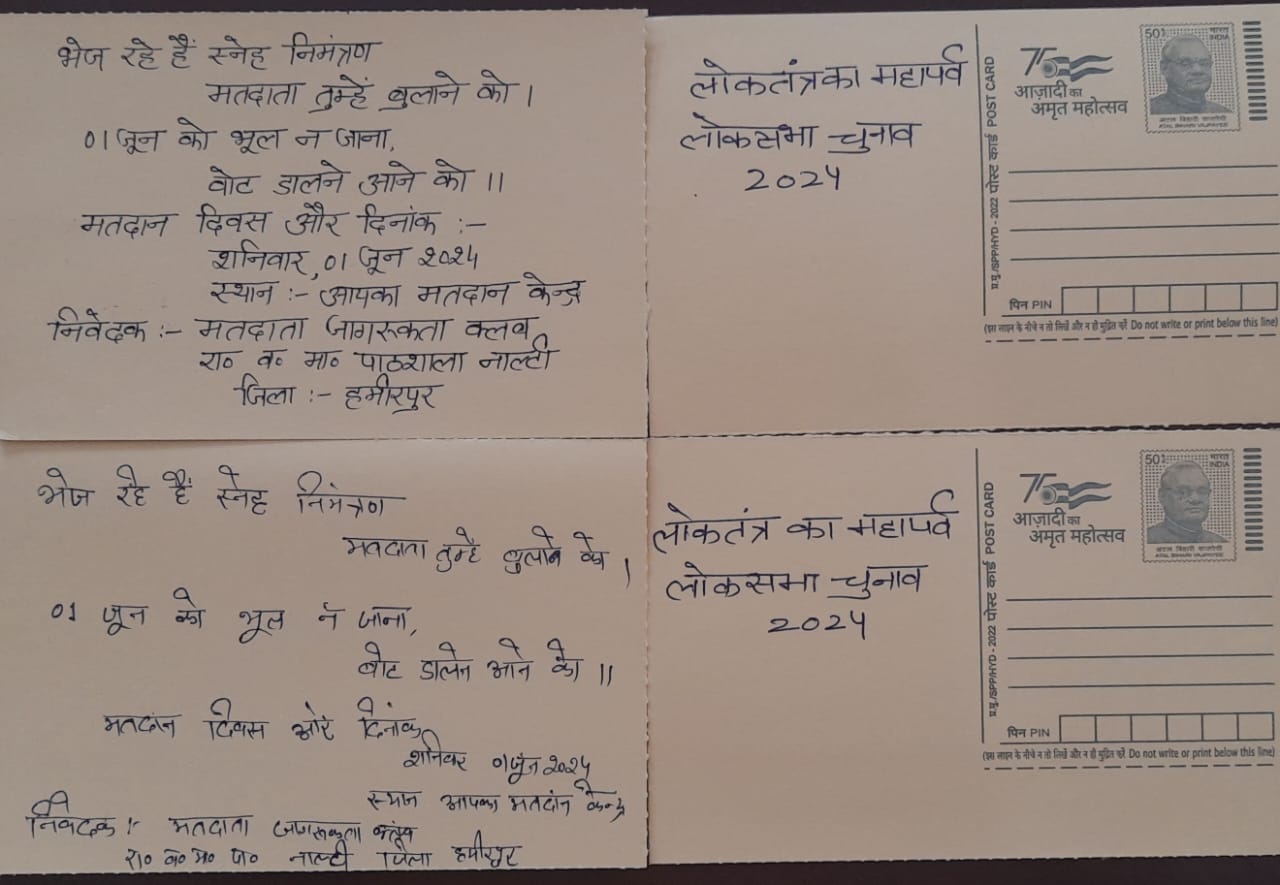 भेज रहे हैं स्नेह निमंत्रण
मतदाता तुम्हें बुलाने को ।
01 जून को भूल न जाना,
वोट डालने आने को ।।
मतदान दिवस और दिनांक :-
शनिवार, 01 जून 2024
स्थान :- आपका मतदान केन्द्र
निवेदक :- मतदाता जागरूकता क्लब
रा० व० मा० पाठशाला नाल्टी
जिला :- हमीरपुर
लोकतंत्र का महापर्व
लोकसभा चुनाव
2024
75
आज़ादी का
अमृत महोत्सव
501
भारत
INDIA
अटल बिहारी वाजपेयी
ATAL BIHARI VAJPAYEE
प्र.मु./SPP/HYD - 2022 पोस्ट कार्ड POST CARD
पिन PIN
(इस लाइन के नीचे न तो लिखें और न ही मुद्रित करें Do not write or print below this line)
भेज रहे हैं स्नेह निमंत्रण
मतदाता तुम्हे बुलाने को ।
01 जून को भूल न जाना,
वोट डालेन आने को ।।
मतदान दिवस और दिनांक
शनिवर 01 जून 2024
स्थान आपका मतदान केन्द्र
निवेदक :- मतदाता जागरूकता क्लब
रा० व० मा० पा० नाल्टी जिला हमीरपुर
लोकतंत्र का महापर्व
लोकसभा चुनाव
2024
75
आज़ादी का
अमृत महोत्सव
501
भारत
INDIA
अटल बिहारी वाजपेयी
ATAL BIHARI VAJPAYEE
प्र.मु./SPP/HYD - 2022 पोस्ट कार्ड POST CARD
पिन PIN
(इस लाइन के नीचे न तो लिखें और न ही मुद्रित करें Do not write or print below this line)